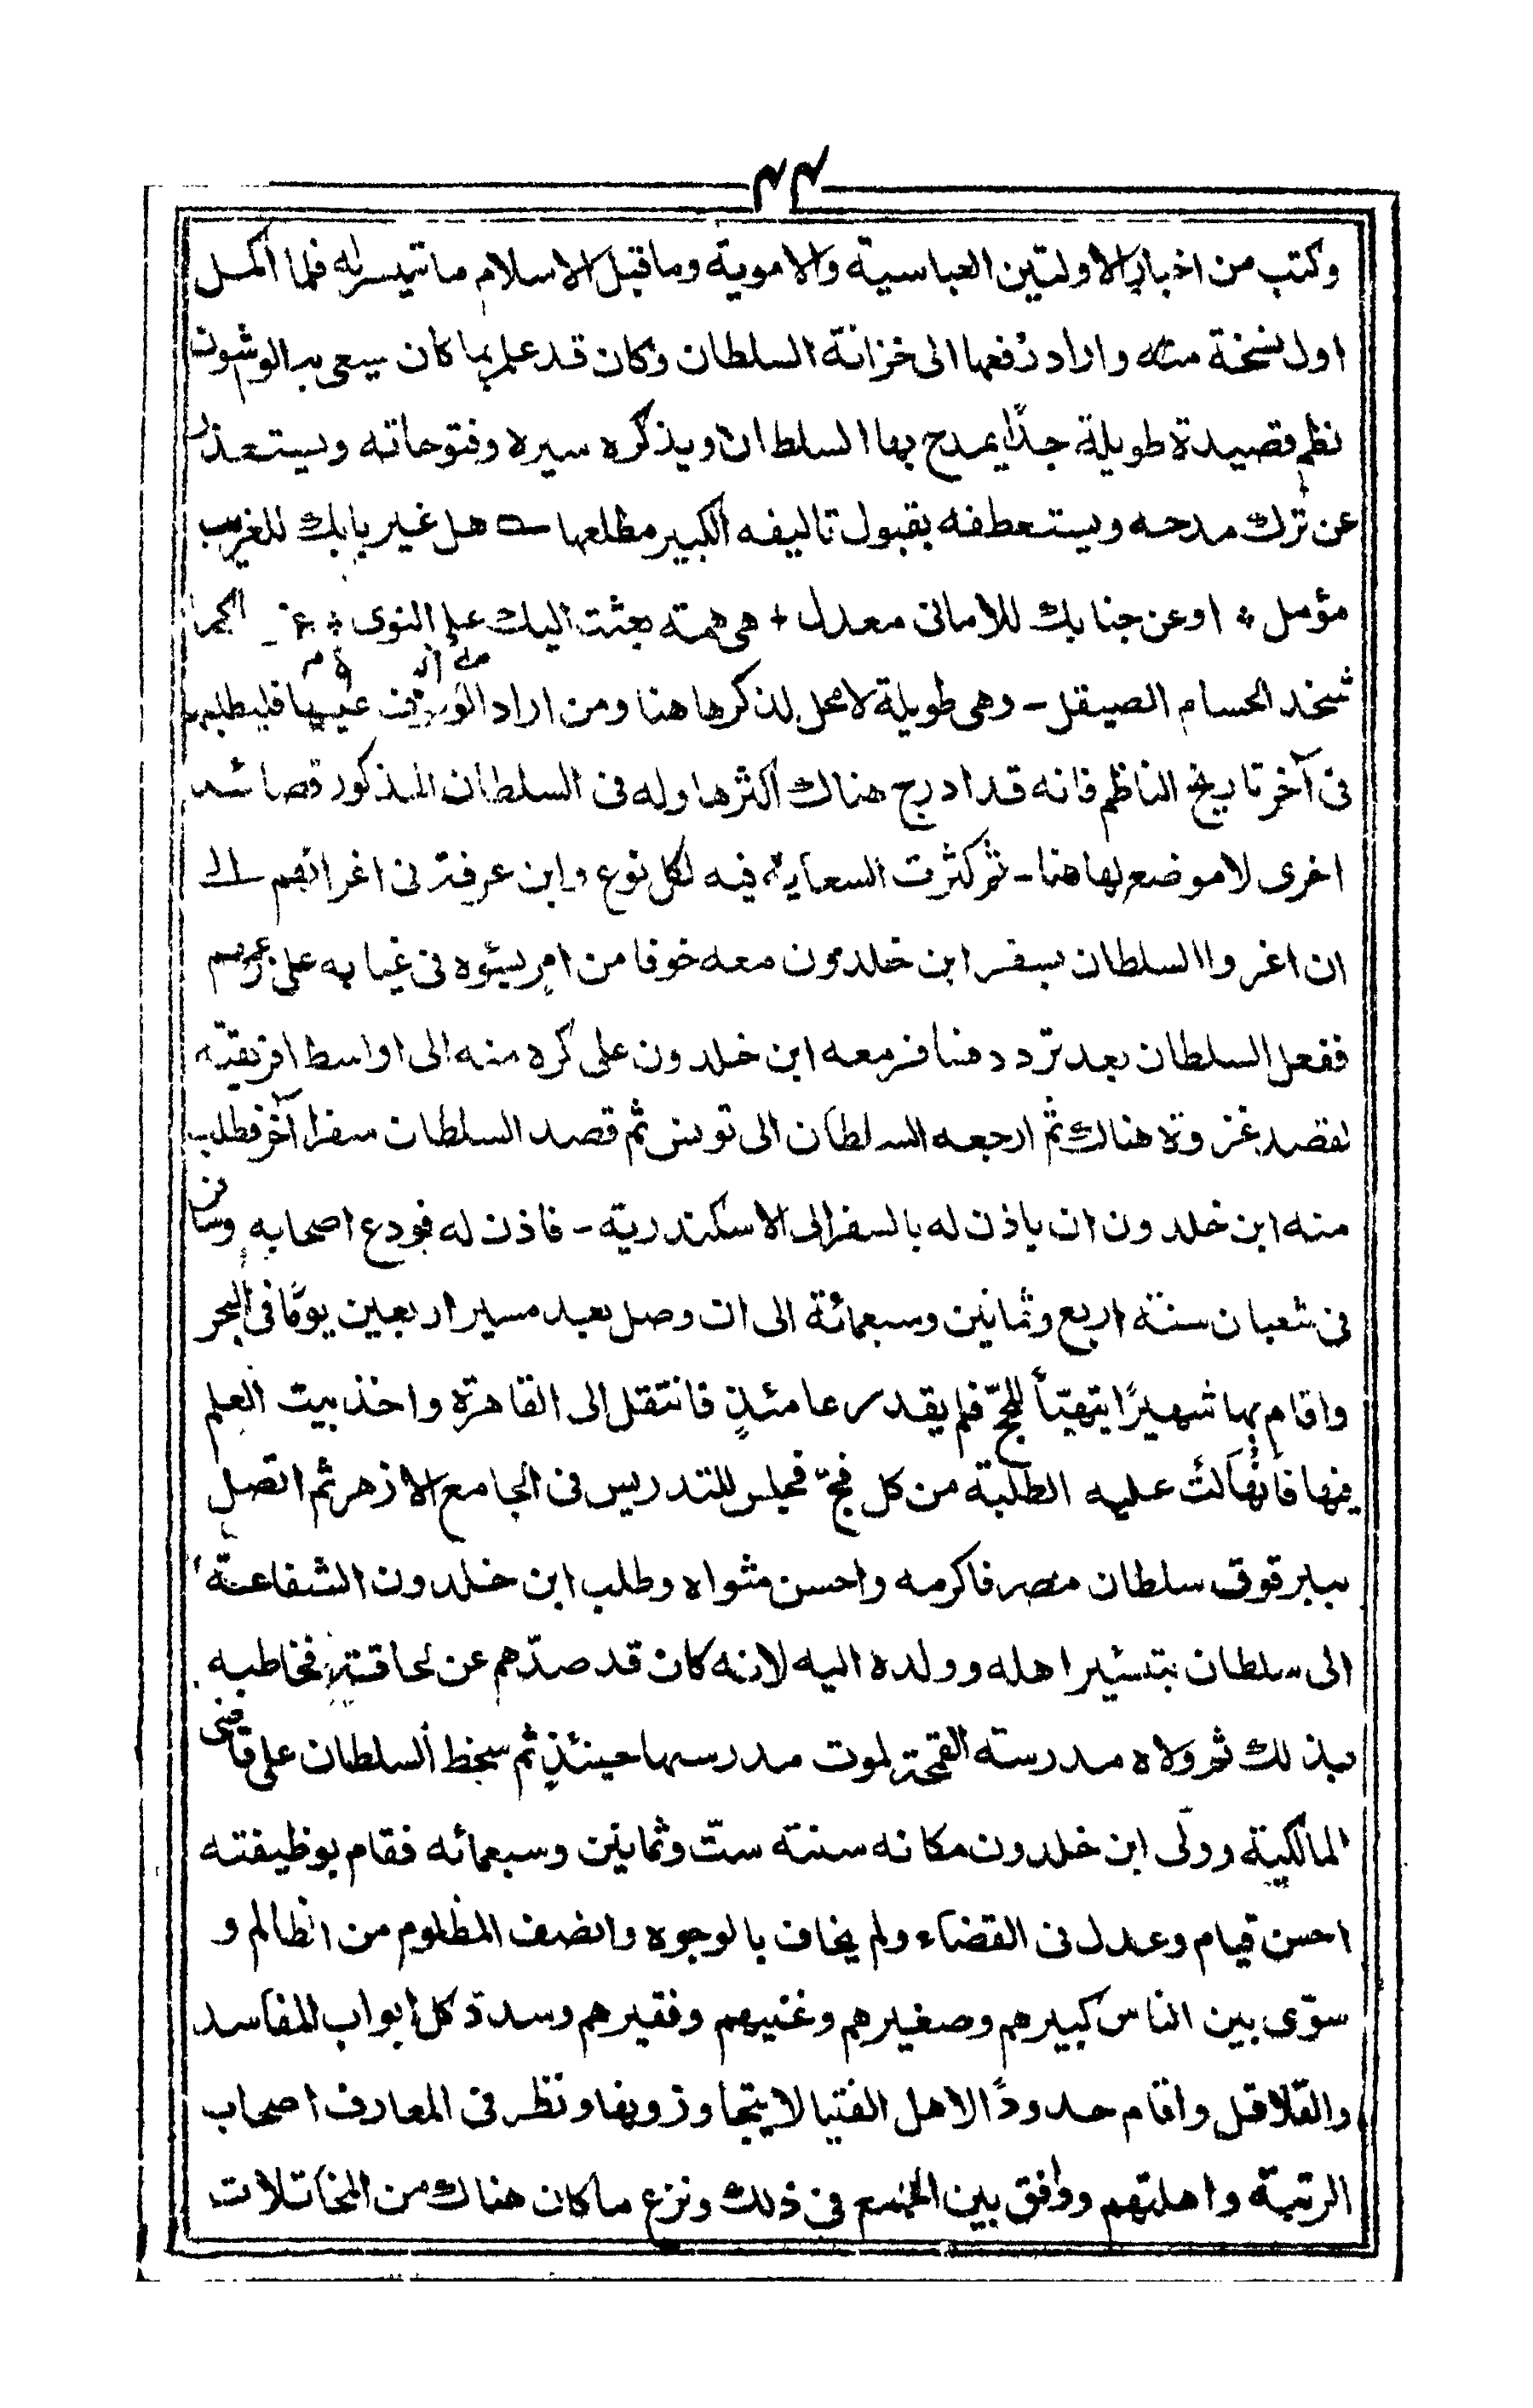 ٤٤
وكتب من اخبار الاولتين العباسية والاموية وما قبل الاسلام ما تيسر له فلما اكمل
اول نسخة منه واراد رفعها الى خزانة السلطان وكان قد علم بما كان سيعى به الوشون
نظم قصيدة طويلة جدًّا يمدح بها السلطان ويذكره سيره وفتوحاته ويستعذر
عن ترك مدحه ويستعطفه بقبول تاليفه الكبير مطلعها ـه هل غير بابك للغريب
مؤمل * او عن جنابك للامانى معدل + هى همة بعثت اليك على النوى *
شحذ الحسام الصيقل ـ وهى طويلة لا محل لذكرها هنا ومن اراد الوقوف عليها فليطلبها
فى آخر تاريخ الناظم فانه قد ادرج هناك اكثرها وله فى السلطان المذكور قصائد
اخرى لا موضع لها هنا ـ ثم كثرت السعاية فيه لكل نوع وابن عرفة فى اغرائهم الى
ان اغروا السلطان بسفر ابن خلدون معه خوفا من امر يسئوه فى غيابه على زعمهم
ففعل السلطان بعد تردد فسافر معه ابن خلدون على كره منه الى اواسط افريقيّة
لقصد غزوة هناك ثم ارجعه السلطان الى تونس ثم قصد السلطان سفرا آخر فطلب
منه ابن خلدون ان ياذن له بالسفر الى الاسكندرية ـ فاذن له فودع اصحابه وسافر
فى شعبان سنة اربع وثمانين وسبعمائة الى ان وصل بعد مسير اربعين يومًا فى البحر
واقام بها شهيرًا يتهيّأ للحجّ فلم يقدر عامئذٍ فانتقل الى القاهرة واخذ ببيت العلم
فيها فانهالت عليه الطلبة من كل فجّ فجلس للتدريس فى الجامع الازهر ثم اتصل
ببرقوق سلطان مصر فاكرمه واحسن مثواه وطلب ابن خلدون الشفاعة
الى سلطان بتسئير اهله وولده اليه لانه كان قد صدّهم عن لحاقته فخاطبه
بذلك ثم ولاه مدرسته القمحة لموت مدرسها حينئذٍ ثم سخط السلطان على قاضى
المالكية وولّى ابن خلدون مكانه سنة ستّ وثمانين وسبعمائه فقام بوظيفته
احسن قيام وعدل فى القضاء ولم يخاف بالوجوه وانصف المظلوم من الظالم و
سوّى بين الناس كبيرهم وصغيرهم وغنيهم وفقيرهم وسدة كل ابواب المفاسد
والقلاقل واقام حدودًا لاهل الفتيا لا يتجاوزونها ونظر فى المعارف اصحاب
الرتبة واهليتهم ووافق بين الجميع فى ذلك ونزع ما كان هناك من المخاتلات